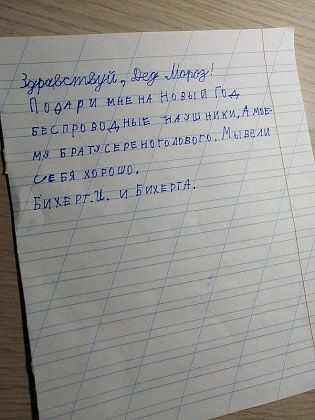 Здравствуй, Дед Мороз!
Подари мне на Новый Год
беспроводные наушники. А мое-
му брату сереноголового. Мы вели
себя хорошо.
Бихерт.И. и Бихерт А.